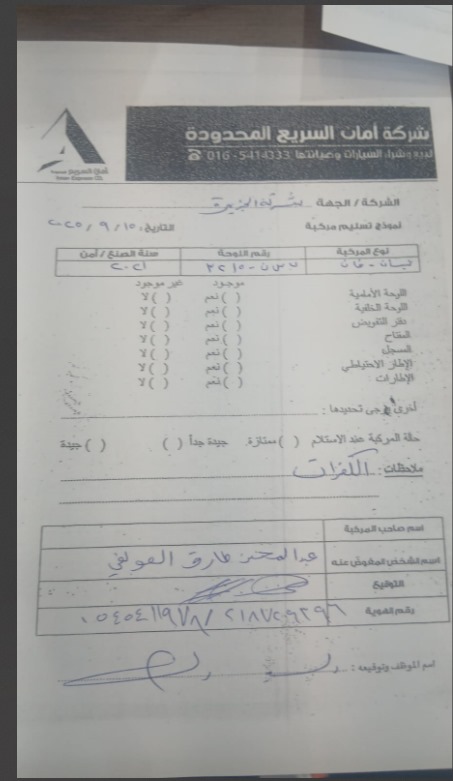 شركة أمان السريع المحدودة
لبيع وشراء السيارات وصيانتها 5414333 - 016
أمان السريع
Aman Express Co.
الشركة / الجهة
نموذج تسليم مركبة التاريخ: ٢٠٢٥ / ٩ / ١٥
نوع المركبة رقم اللوحة سنة الصنع / آمن
نيسان - فان ٢٢١٥ ٢٠٢١
موجود غير موجود
اللوحة الأمامية ( ) نعم ( ) لا
اللوحة الخلفية ( ) نعم ( ) لا
دفتر التفويض ( ) نعم ( ) لا
المفتاح ( ) نعم ( ) لا
المسجل ( ) نعم ( ) لا
الإطار الاحتياطي ( ) نعم ( ) لا
الإطارات ( ) نعم ( ) لا
أخرى يرجى تحديدها :
حالة المركبة عند الاستلام ( ) ممتازة ( ) جيدة جداً ( ) جيدة
ملاحظات : الكفرات
اسم صاحب المركبة
اسم الشخص المفوض عنه طارق
التوقيع
رقم الهوية
اسم الموظف وتوقيعه :